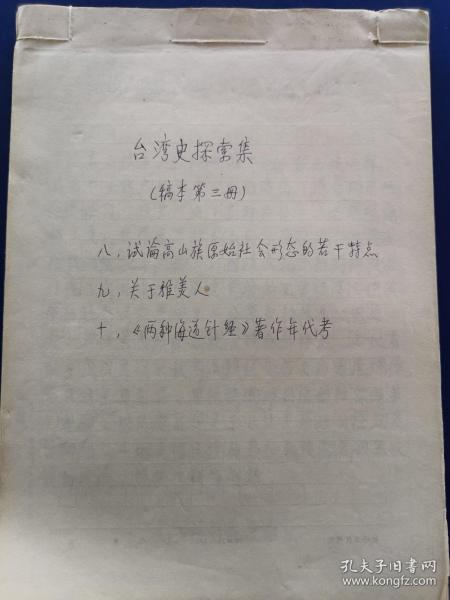 台湾史探索集
(稿本第三册)
八，试论高山族原始社会形态的若干特点
九，关于雅美人
十，《两种海道针经》著作年代考
孔夫子旧书网
www.kongfz.com